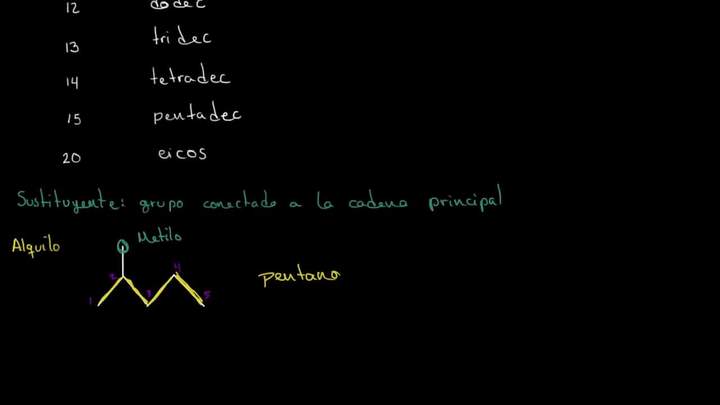 12 dodec
13 tridec
14 tetradec
15 pentadec
20 eicos
Sustituyente: grupo conectado a la cadena principal
Alquilo
Metilo
pentano
1 2 3 4 5